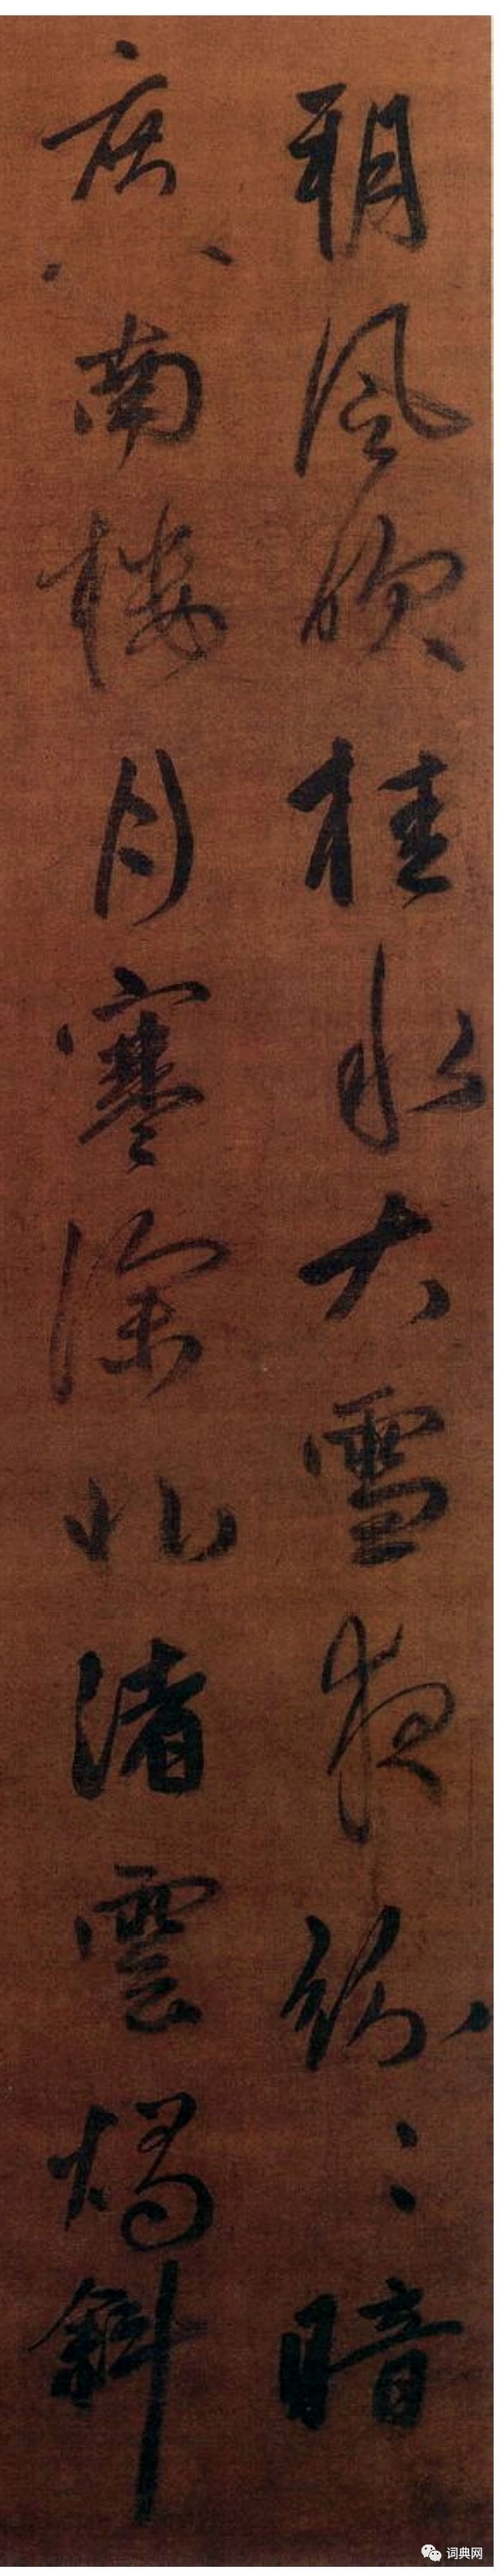 朔風吹桂水大雪夜紛〻暗
度南樓月寒深北渚雲燭斜
词典网